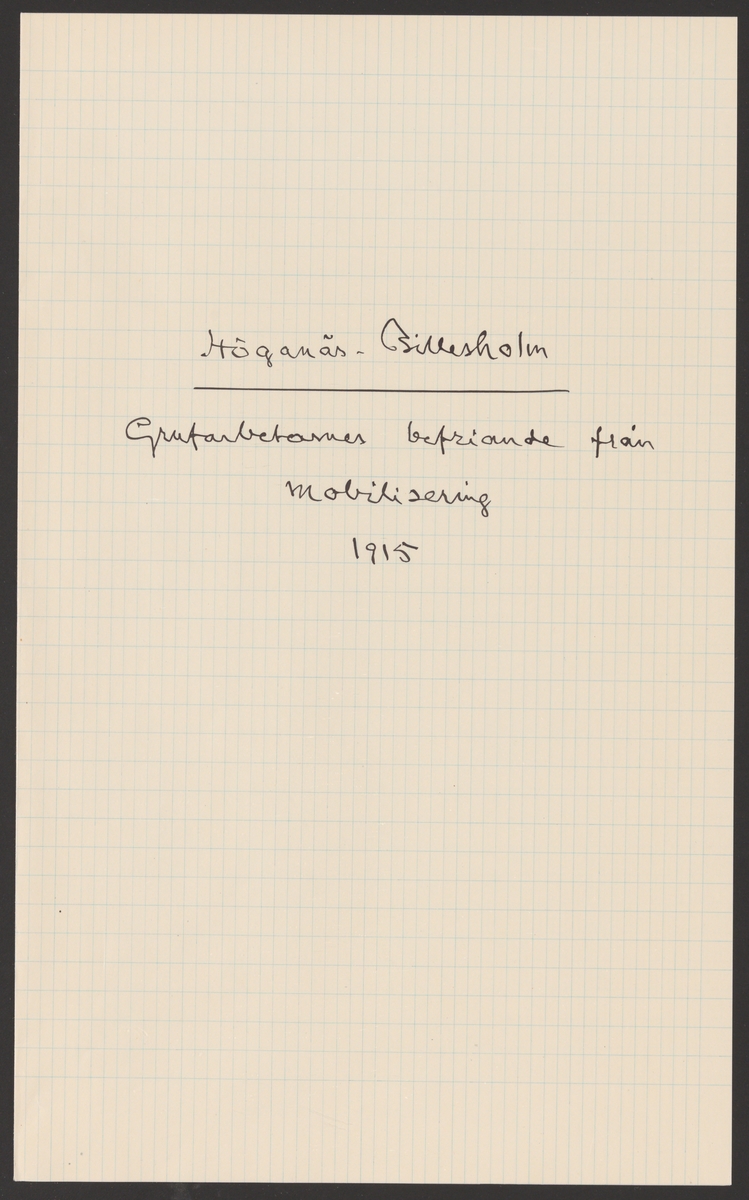 Höganäs-Billesholm
Grufarbetarnes befriande från
mobilisering
1915